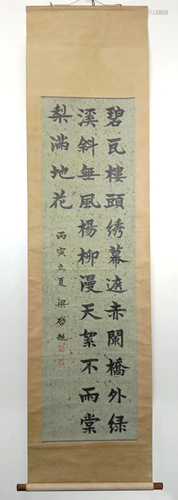 碧瓦樓頭绣幕遮赤闌橋外绿
溪斜無風楊柳漫天絮不雨棠
梨满地花
丙寅立夏 梁啟超